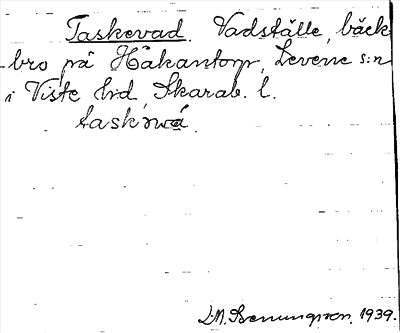 Taskevad. Vadställe, bäck-
bro på Håkantorp, Levene s:n
i Viste hd, Skarab. l.
taskəvá.
1939.